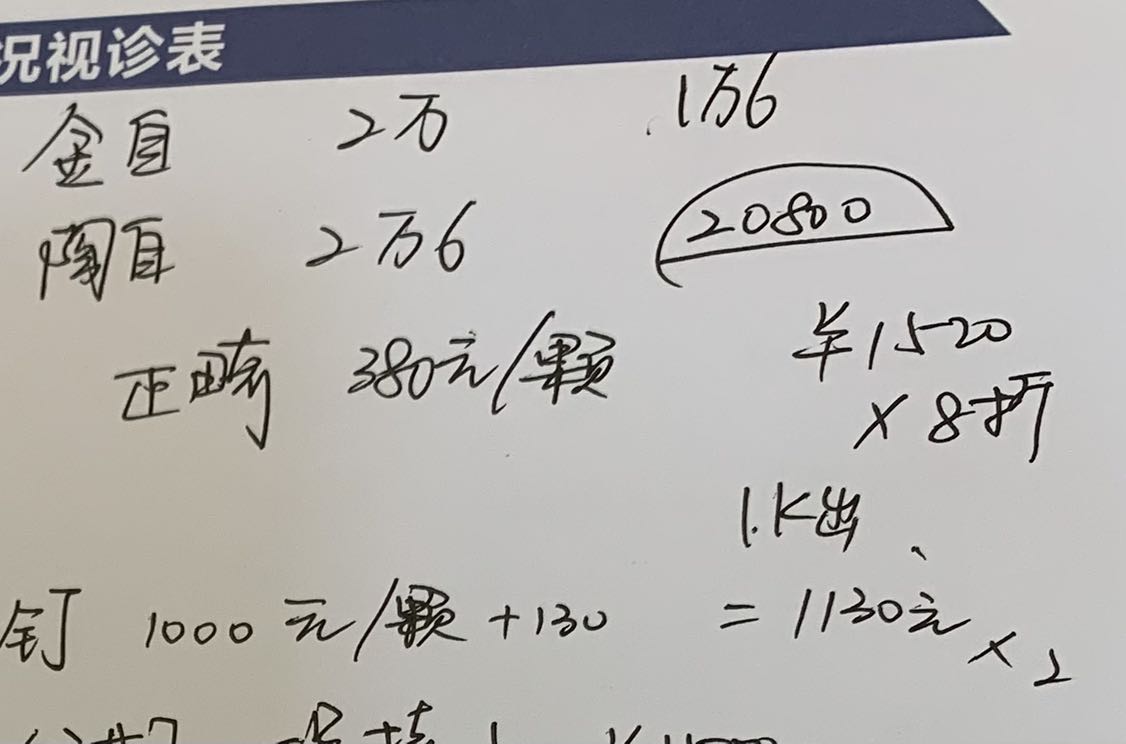 况视诊表
金自 2万 1万6
陶自 2万6 20800
正畸 380元/颗 ¥1520
×8折
1.K出、
钉 1000元/颗+130 =1130元×2